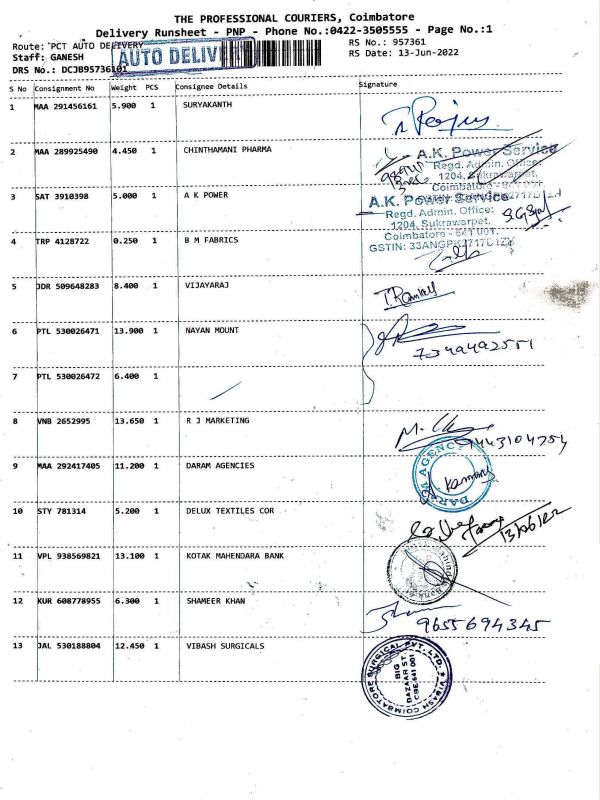 THE PROFESSIONAL COURIERS, Coimbatore
Delivery Runsheet - PNP - Phone No.:0422-3505555 - Page No.:1
Route: PCT AUTO DELIVERY
RS No.: 957361
Staff: GANESH
AUTO DELIV
RS Date: 13-Jun-2022
DRS No.: DCJB95736101
S No Consignment No Weight PCS Consignee Details Signature
1 MAA 291456161 5.900 1 SURYAKANTH
2 MAA 289925490 4.450 1 CHINTHAMANI PHARMA
A.K. Power Service
Regd. Admin. Office:
1204, Sukrawarpet,
3 SAT 3910398 5.000 1 A K POWER
A.K. Power Service
Regd. Admin. Office:
1204, Sukrawarpet,
Coimbatore - 641 001.
GSTIN: 33ANGPK2717D1ZY
4 TRP 4128722 0.250 1 B M FABRICS
5 JDR 509648283 8.400 1 VIJAYARAJ
6 PTL 530026471 13.900 1 NAYAN MOUNT
7 PTL 530026472 6.400 1
8 VNB 2652995 13.650 1 R J MARKETING
9 MAA 292417405 11.200 1 DARAM AGENCIES
10 STY 781314 5.200 1 DELUX TEXTILES COR
13/06/22
11 VPL 938569821 13.100 1 KOTAK MAHENDARA BANK
12 KUR 608778955 6.300 1 SHAMEER KHAN
9655694345
13 JAL 530188804 12.450 1 VIBASH SURGICALS
VIBASH COIMBATORE SURGICAL PVT. LTD.
BIG
BAZAAR ST.
CBE-641 001